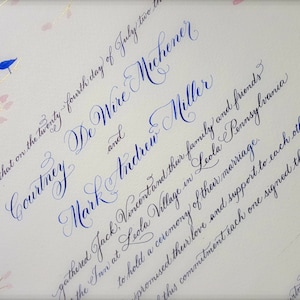 that on the twenty-fourth day of July two th
Courtney DeWire Michener
and
Mark Andrew Miller
gathered Jack, Vincent and their family and friends
the Inn at Leola Village in Leola, Pennsylvania
to hold a ceremony of their marriage.
promised their love and support to each oth
this commitment each one signed th